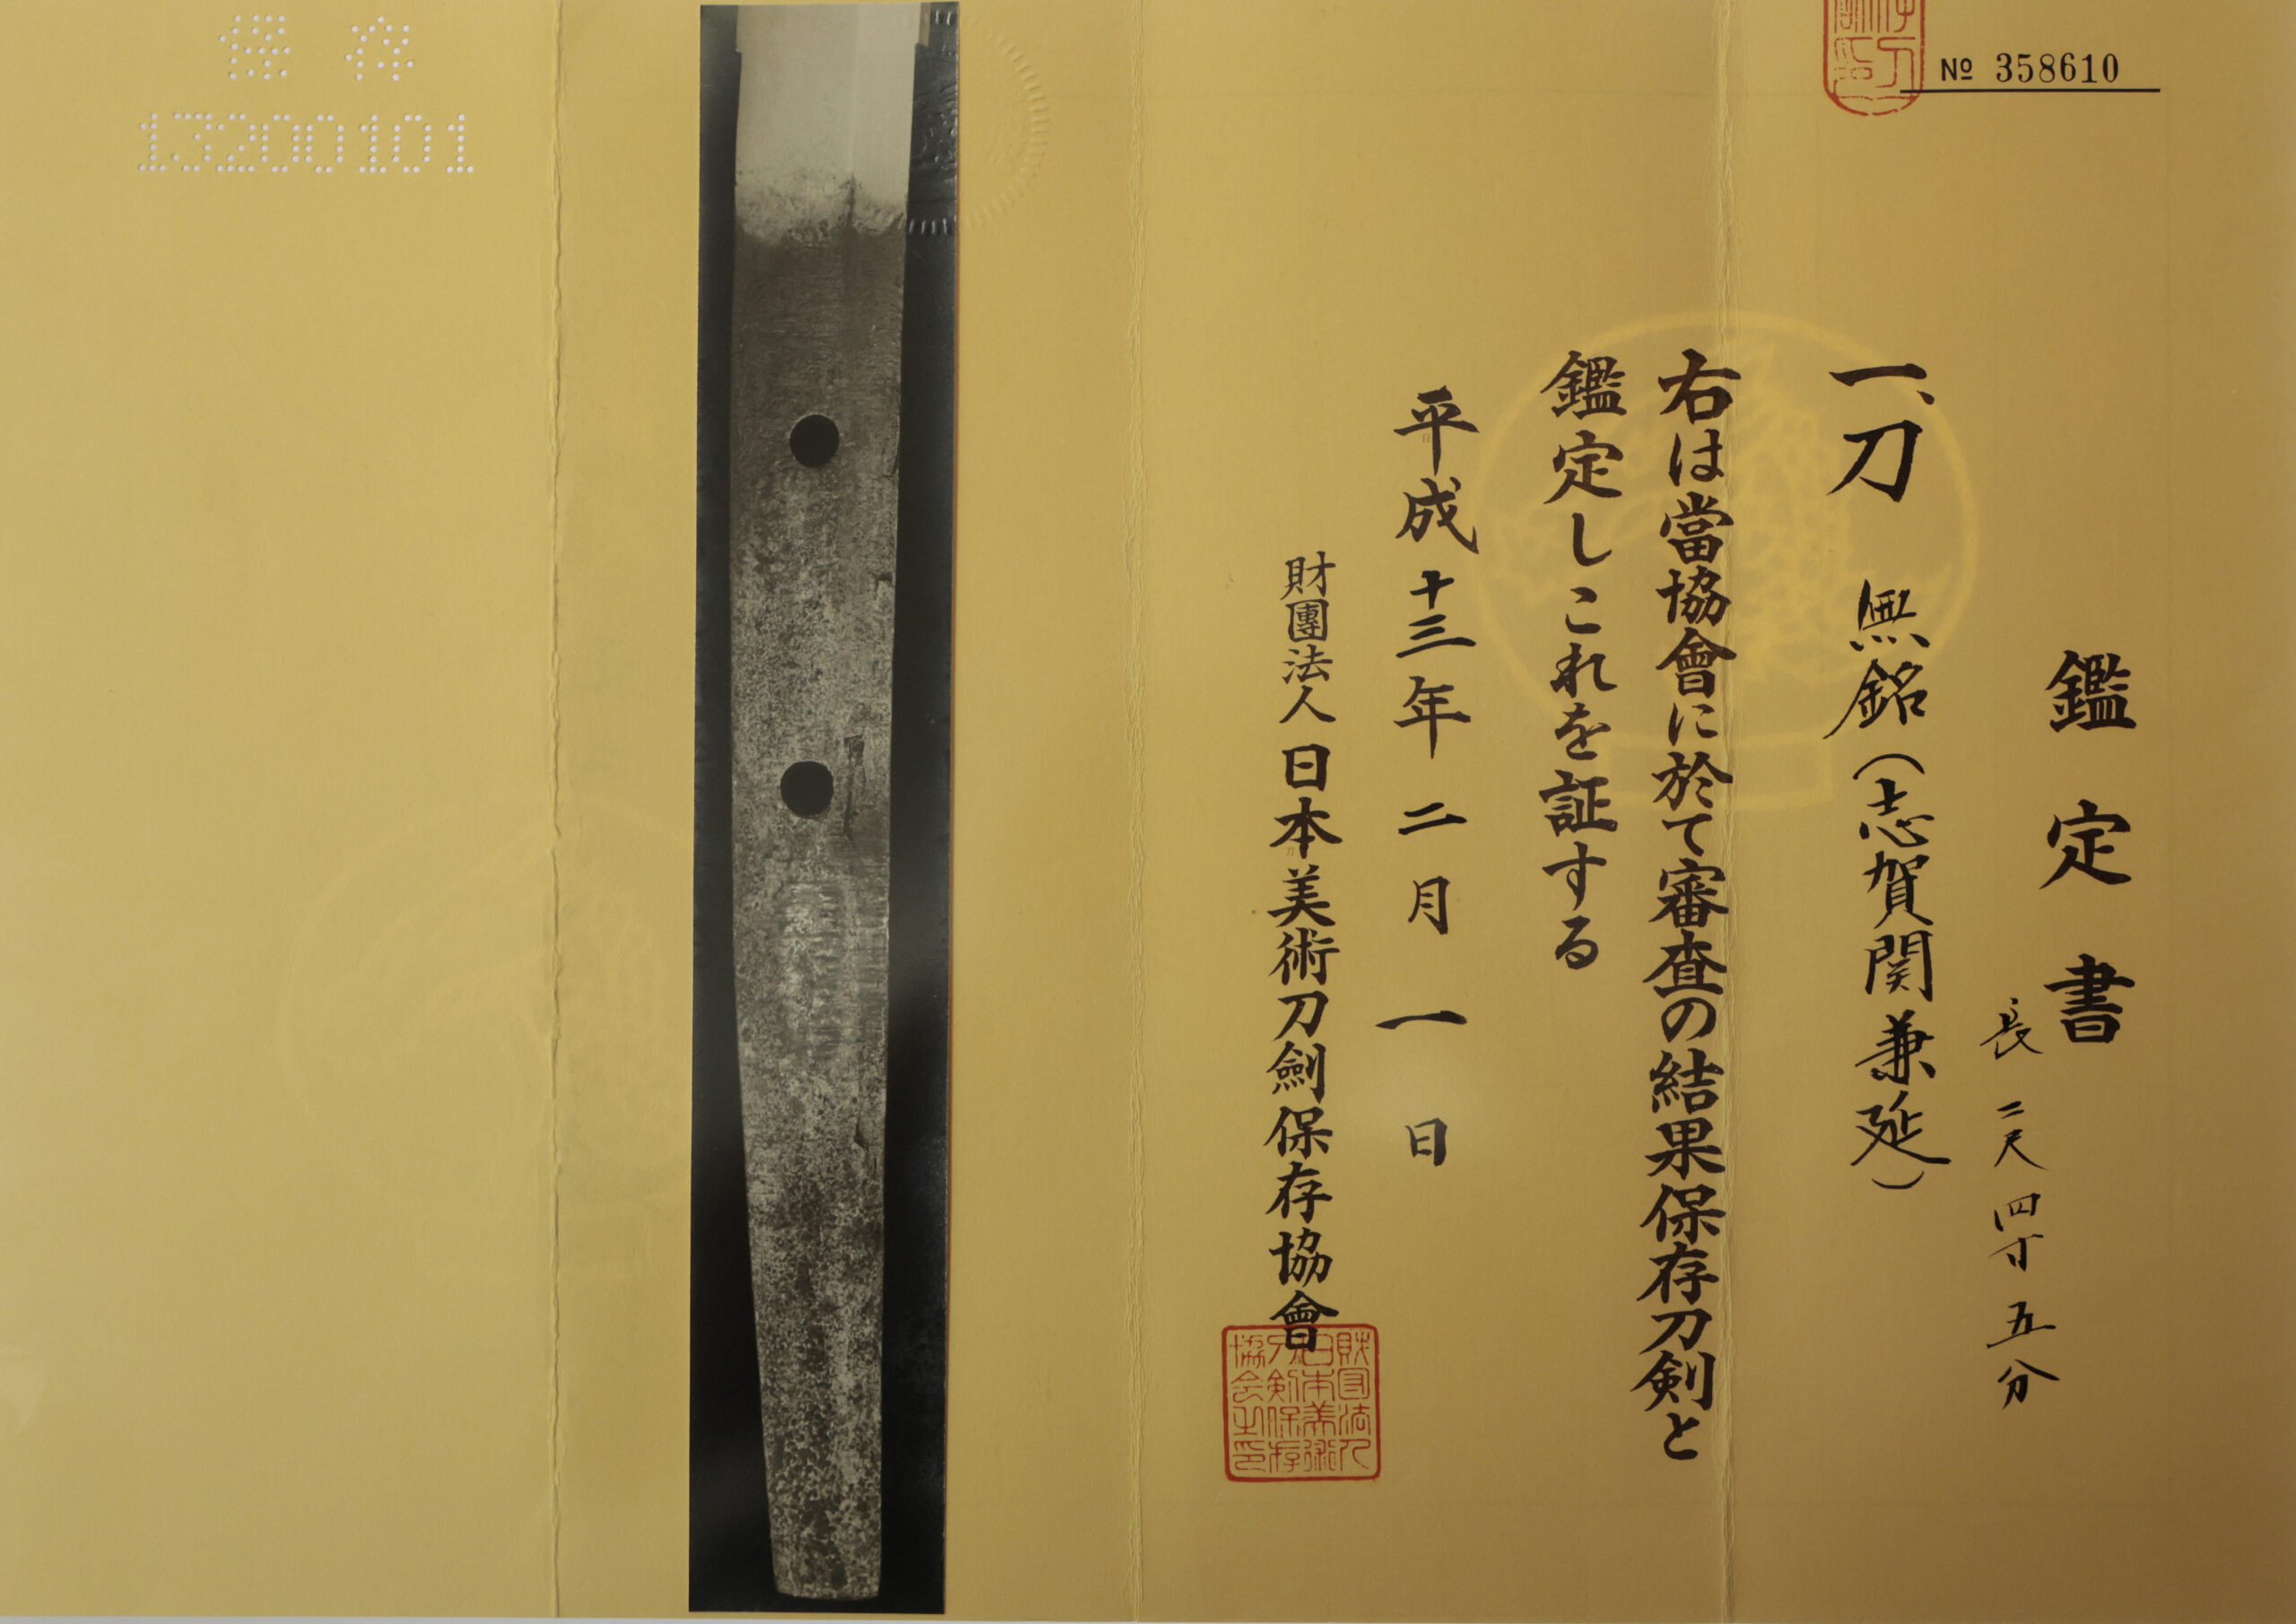 № 358610
鑑定書
長 二尺四寸五分
一、刀 無銘(志賀関兼延)
右は當協會に於て審査の結果保存刀剣と
鑑定しこれを証する
平成十三年二月一日
財團法人日本美術刀劍保存協會
財団法人
日本美術
刀剣保存
協会之印
保存
13200101